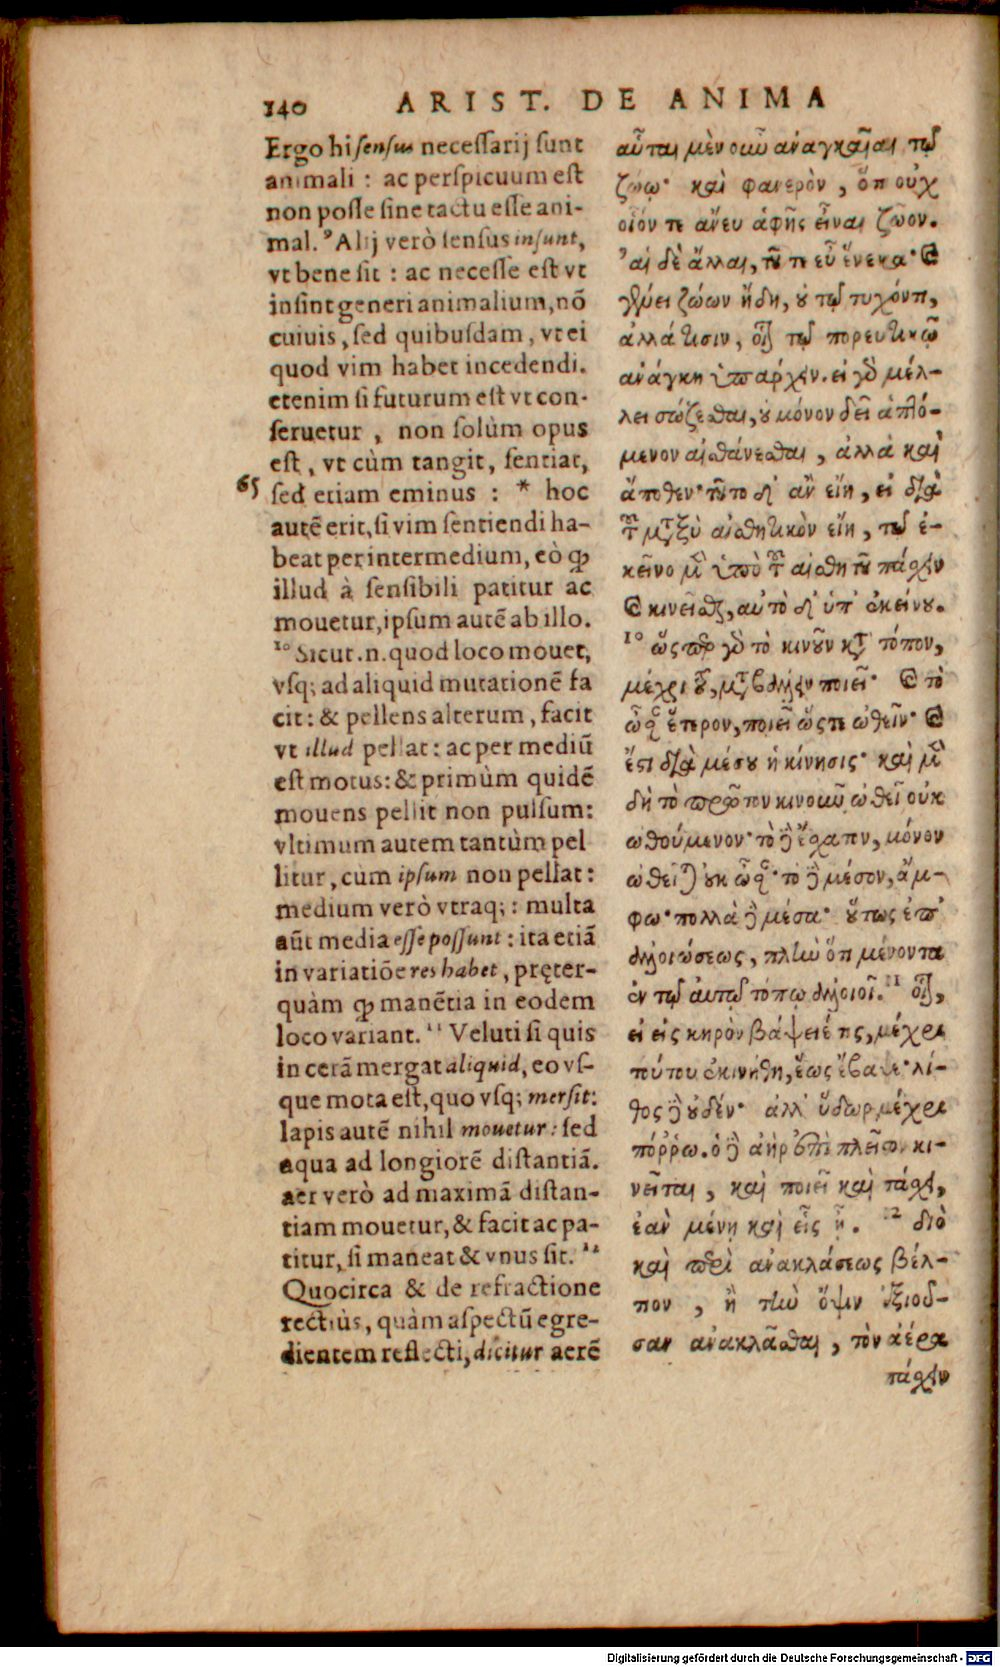 140 ARIST. DE ANIMA
Ergo hi sensus necessarij sunt
animali : ac perspicuum est
non posse sine tactu esse ani-
mal. ⁹ Alij verò sensus insunt,
vt bene sit : ac necesse est vt
insint generi animalium, nō
cuiuis, sed quibusdam, vt ei
quod vim habet incedendi.
etenim si futurum est vt con-
seruetur, non solùm opus
est, vt cùm tangit, sentiat,
65 sed etiam eminus : * hoc
autē erit, si vim sentiendi ha-
beat per intermedium, eò ꝙ
illud à sensibili patitur ac
mouetur, ipsum autē ab illo.
¹⁰ Sicut .n. quod loco mouet,
vsq; ad aliquid mutationē fa
cit : & pellens alterum, facit
vt illud pellat : ac per mediū
est motus : & primùm quidē
mouens pellit non pulsum:
vltimum autem tantùm pel
litur, cùm ipsum non pellat:
medium verò vtraq; : multa
aūt media esse possunt : ita etiā
in variatiōe res habet, pręter-
quàm ꝙ manētia in eodem
loco variant. ¹¹ Veluti si quis
in cerā mergat aliquid, eo vs-
que mota est, quo vsq; mersit:
lapis autē nihil mouetur : sed
aqua ad longiorē distantiā.
aer verò ad maximā distan-
tiam mouetur, & facit ac pa-
titur, si maneat & vnus sit. ¹²
Quocirca & de refractione
rectiùs, quàm aspectū egre-
dientem reflecti, dicitur aerē
αὗται μὲν οὖν ἀναγκαῖαι τῷ
ζώῳ· καὶ φανερὸν, ὅτι οὐχ
οἷόν τε ἄνευ ἁφῆς εἶναι ζῶον.
⁹ αἱ δὲ ἄλλαι, τοῦ τε εὖ ἕνεκα· καὶ
γένει ζώων ἤδη, οὐ τῷ τυχόντι,
ἀλλά τισιν, οἷον τῷ πορευτικῷ
ἀνάγκη ὑπάρχειν. εἰ γὰρ μέλ-
λει σώζεσθαι, οὐ μόνον δεῖ ἁπτό-
μενον αἰσθάνεσθαι, ἀλλὰ καὶ
ἄποθεν· τοῦτο δ' ἂν εἴη, εἰ διὰ
τοῦ μεταξὺ αἰσθητικὸν εἴη, τῷ ἐ-
κεῖνο μὲν ὑπὸ τοῦ αἰσθητοῦ πάσχειν
καὶ κινεῖσθαι, αὐτὸ δ' ὑπ' ἐκείνου.
¹⁰ ὥσπερ γὰρ τὸ κινοῦν κατὰ τόπον,
μέχρι τοῦ, μεταβάλλειν ποιεῖ· καὶ τὸ
ὦσαν ἕτερον, ποιεῖ ὥστε ὠθεῖν· καὶ
ἔστι διὰ μέσου ἡ κίνησις· καὶ μὲν
δὴ τὸ πρῶτον κινοῦν ὠθεῖ οὐκ
ὠθούμενον· τὸ δὲ ἔσχατον, μόνον
ὠθεῖται οὐκ ὦσαν· τὸ δὲ μέσον, ἄμ-
φω· πολλὰ δὲ μέσα· οὕτως ἐπ'
ἀλλοιώσεως, πλὴν ὅτι μένοντα
ἐν τῷ αὐτῷ τόπῳ ἀλλοιοῖ. ¹¹ οἷον,
εἰ εἰς κηρὸν βάψειέ τις, μέχρι
τούτου ἐκινήθη, ἕως ἔβαψε· λί-
θος δὲ οὐδέν· ἀλλ' ὕδωρ μέχρι
πόῤῥω. ὁ δὲ ἀὴρ ἐπὶ πλεῖστον κι-
νεῖται, καὶ ποιεῖ καὶ πάσχει,
ἐὰν μένῃ καὶ εἷς ᾖ. ¹² διὸ
καὶ περὶ ἀνακλάσεως βέλ-
τιον, ἢ τὴν ὄψιν ἐξιοῦ-
σαν ἀνακλᾶσθαι, τὸν ἀέρα
πάσχειν
Digitalisierung gefördert durch die Deutsche Forschungsgemeinschaft - DFG